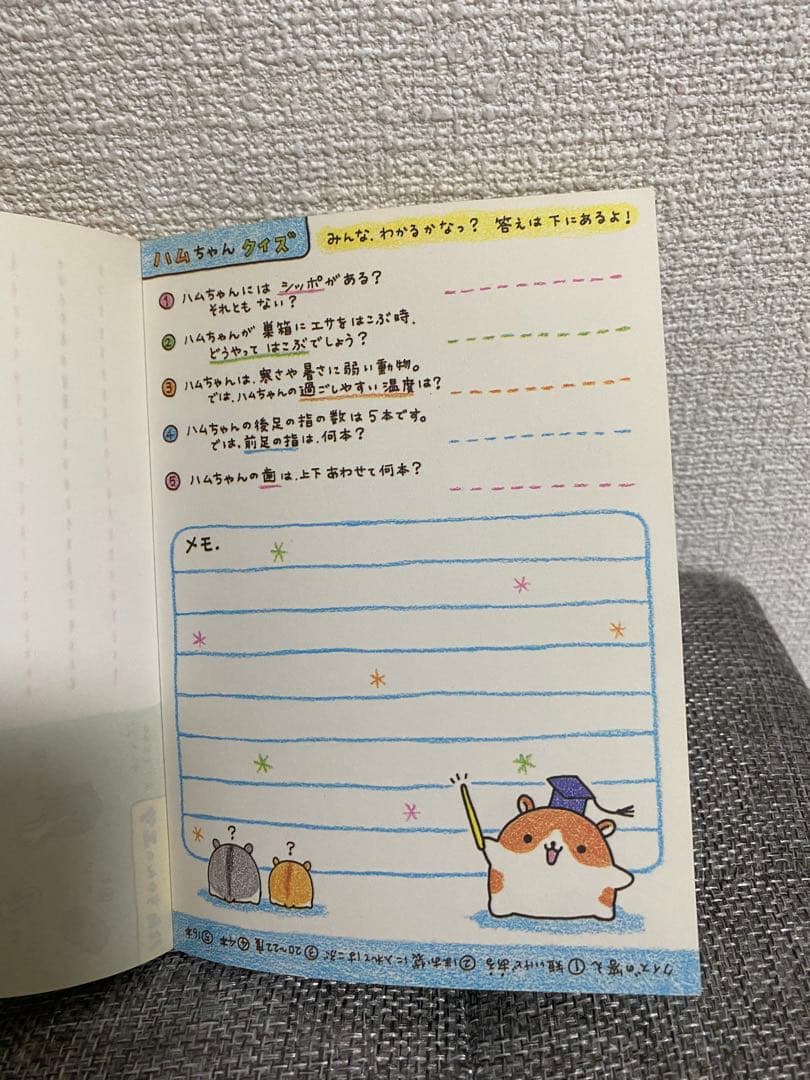 ハムちゃん クイズ
みんな、わかるかなっ？ 答えは下にあるよ！
① ハムちゃんには シッポがある？
それとも ない？
② ハムちゃんが 巣箱に エサを はこぶ時、
どうやって はこぶでしょう？
③ ハムちゃんは、寒さや暑さに弱い動物。
では、ハムちゃんの過ごしやすい温度は？
④ ハムちゃんの後足の指の数は5本です。
では、前足の指は、何本？
⑤ ハムちゃんの歯は、上下あわせて何本？
メモ.
?
?
クイズの答え ① 短いけどある ② ほお袋に入れてはこぶ ③ 20〜22度 ④ 4本 ⑤ 16本